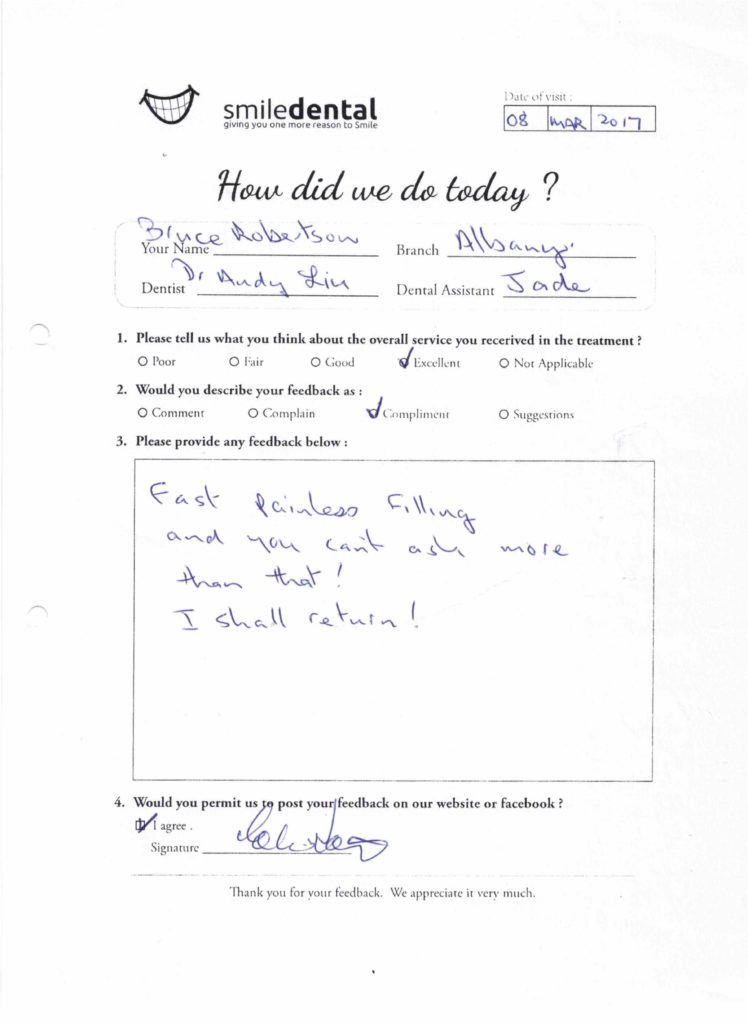 smiledental
giving you one more reason to Smile
Date of visit :
08 MAR 2017
How did we do today ?
Your Name Bruce Robertson Branch Albany
Dentist Dr Andy Liu Dental Assistant Jade
1. Please tell us what you think about the overall service you recerived in the treatment ?
Poor Fair Good Excellent Not Applicable
2. Would you describe your feedback as :
Comment Complain Compliment Suggestions
3. Please provide any feedback below :
Fast Painless Filling
and you can't ask more
than that!
I shall return!
4. Would you permit us to post your feedback on our website or facebook ?
I agree .
Signature
Thank you for your feedback. We appreciate it very much.